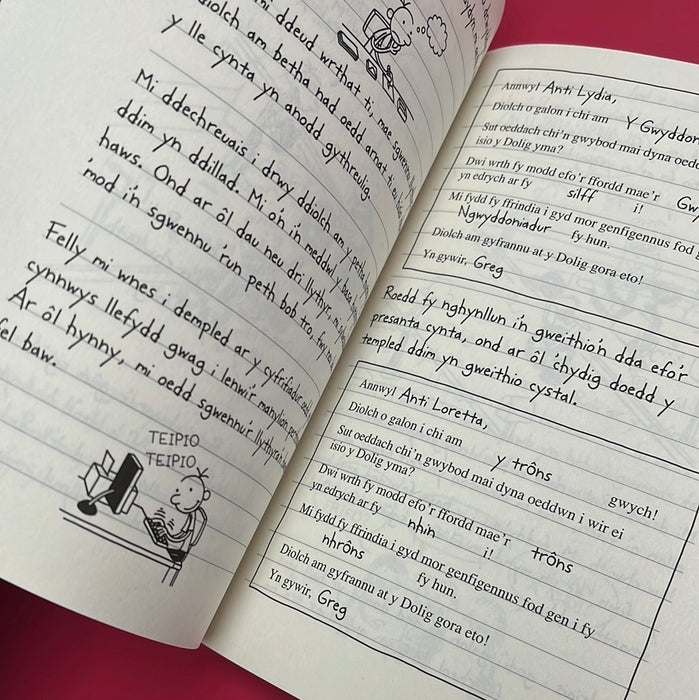 mi ddeud wrthat ti, mae sgwennu
diolch am betha nad oedd arnat ti eu
y lle cynta yn anodd gythreulig.
Mi ddechreuais i drwy ddiolch am y petha
ddim yn ddillad. Mi o'n i'n meddwl y
haws. Ond ar ôl dau neu dri llythyr, mi
'mod i'n sgwennu 'run peth bob tro,
Felly mi wnes i dempled ar y cyfrifiadur
cynnwys llefydd gwag i lenwi'r manylion
Ar ôl hynny, mi oedd sgwennu'r llythyra'n
fel baw.
TEIPIO
TEIPIO
Annwyl Anti Lydia,
Diolch o galon i chi am Y Gwyddon
Sut oeddach chi'n gwybod mai dyna
isio y Dolig yma?
Dwi wrth fy modd efo'r ffordd mae'r
yn edrych ar fy silff i!
Mi fydd fy ffrindia i gyd mor genfigennus fod
Ngwyddoniadur fy hun.
Diolch am gyfrannu at y Dolig gora eto!
Yn gywir, Greg
Roedd fy nghynllun i'n gweithio'n dda efo'r
presanta cynta, ond ar ôl 'chydig doedd y
templed ddim yn gweithio cystal.
Annwyl Anti Loretta,
Diolch o galon i chi am y trôns gwych!
Sut oeddach chi'n gwybod mai dyna oeddwn i wir ei
isio y Dolig yma?
Dwi wrth fy modd efo'r ffordd mae'r trôns
yn edrych ar fy nhin i!
Mi fydd fy ffrindia i gyd mor genfigennus fod gen i fy
nhrôns fy hun.
Diolch am gyfrannu at y Dolig gora eto!
Yn gywir, Greg